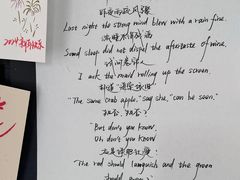 昨夜雨疏风骤
Last night the strong wind blew with a rain fine.
浓睡不消残酒
Sound sleep did not dispel the aftertaste of wine.
试问卷帘人
I ask the maid rolling up the screen.
却道海棠依旧
"The same crab apple," say she, "can be seen."
知否?知否?
"But don't you know,
Oh don't you know
应是绿肥红瘦
"The red should languish and the green
should grow?"